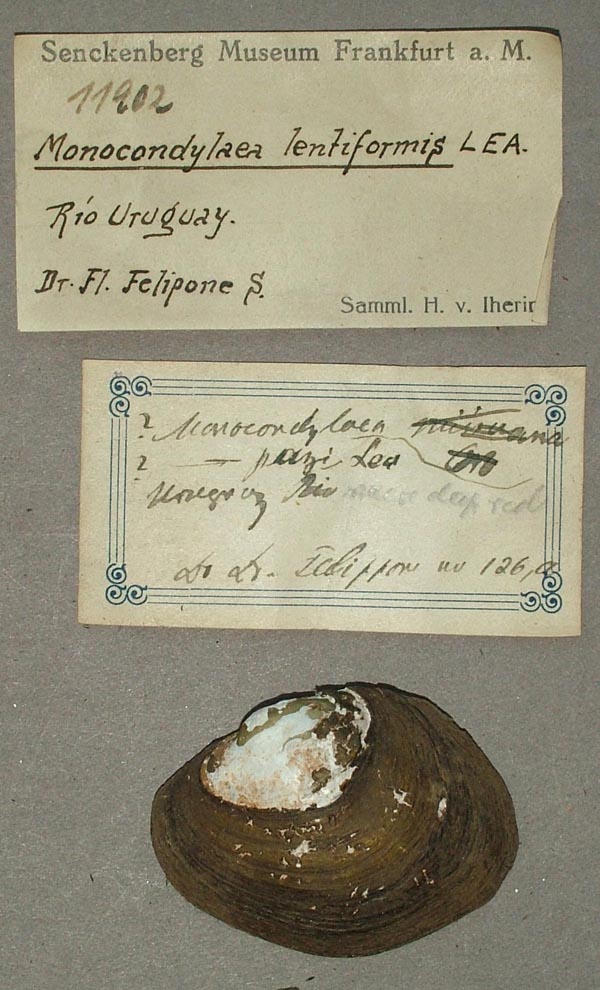 Senckenberg Museum Frankfurt a. M.
11902
Monocondylaea lentiformis LEA.
Río Uruguay.
Dr. Fl. Felipone S.
Samml. H. v. Iherin
? Monocondylaea
? — pazi Lea
Uruguay Rio deep red
Do Dr. Felippone no 126,a